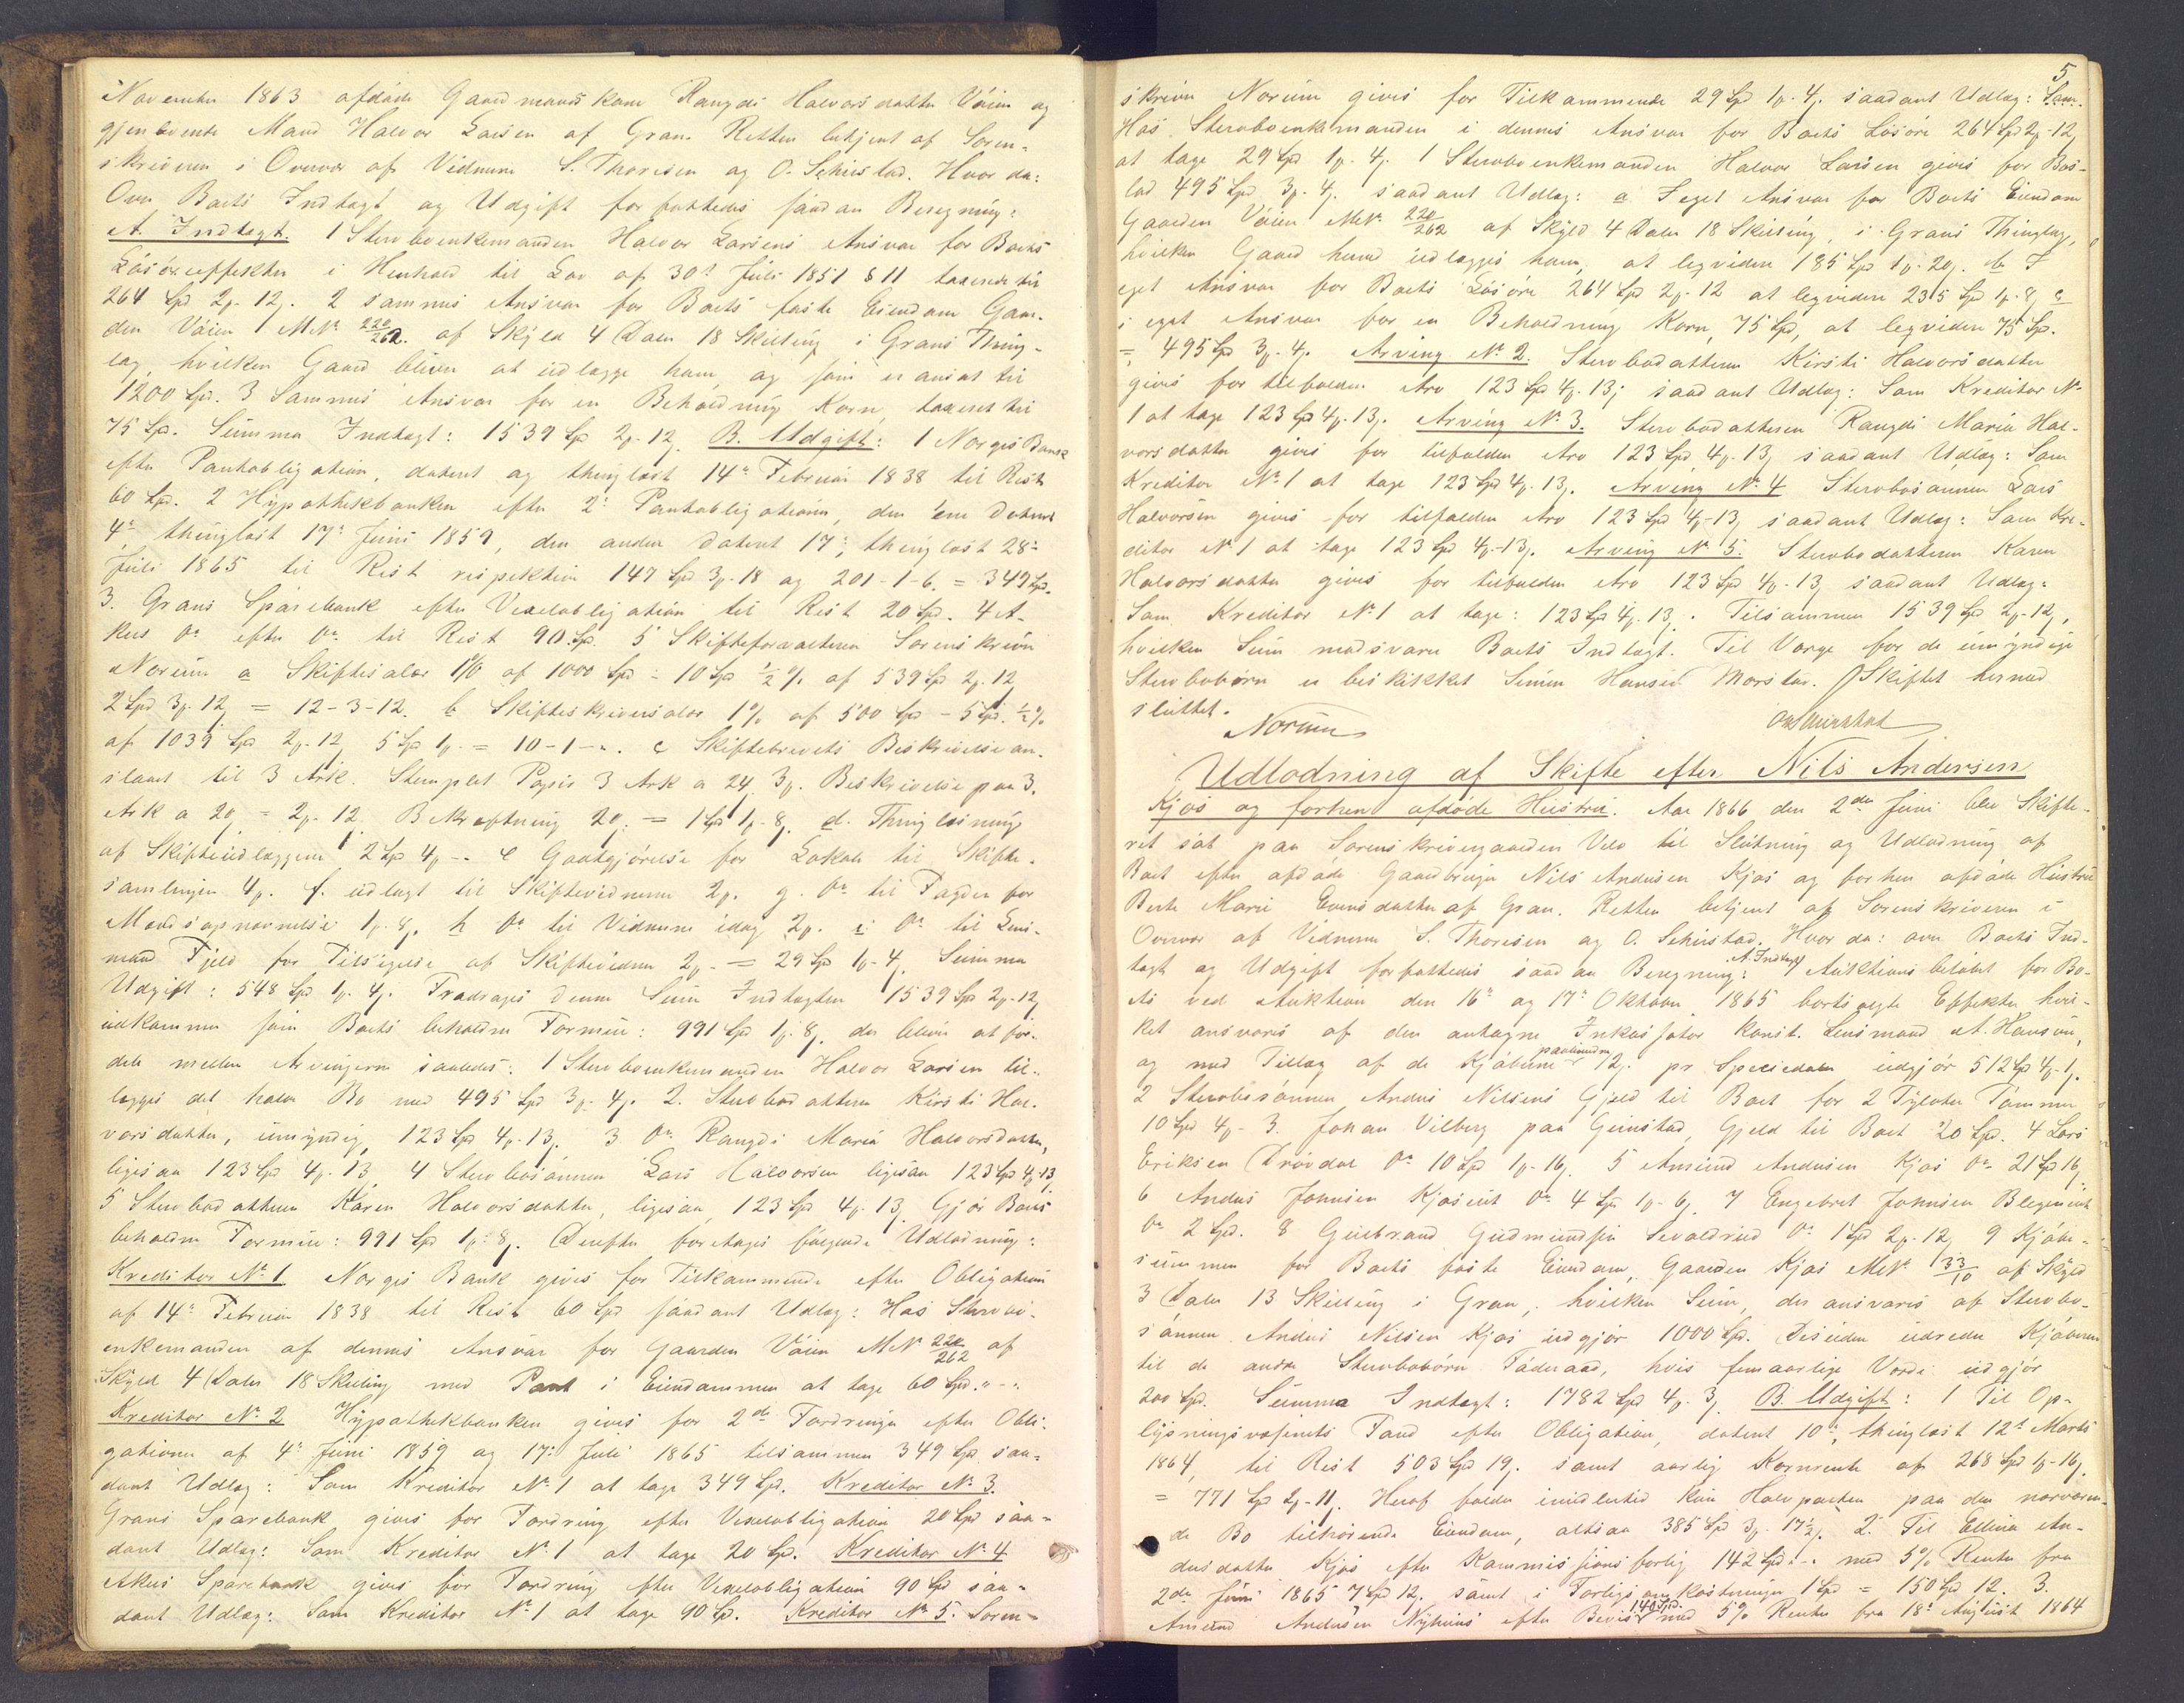 November 1863 afdøde Gaardmandskone Rangdi Halvorsdatter Vøien og
gjenlevende Mand Halvor Larsen af Gran. Retten betjent af Soren-
skriveren i Overvær af Vidnerne S. Thoresen og O. Schirstad. Hvor da:
Over Boets Indtægt og Udgift forfattedes saadan Beregning:
A. Indtægt. 1 Stervboenkemanden Halvor Larsens Ansvar for Boets
Løsøreeffekter i Henhold til Lov af 30te Juli 1851 § 11 taxerede til
264 Spd 2 - 12. 2 sammes Ansvar for Boets faste Eiendom Gaar-
den Vøien MNr 220/262 af Skyld 4 Daler 18 Skilling i Grans Thing-
lag, hvilken Gaard bliver at udlægge ham, og som er ansat til
1200 Spd. 3 Sammes Ansvar for en Beholdning Korn, taxeret til
75 Sp. Summa Indtægt: 1539 Sp 2 - 12. B. Udgift: 1 Norges Bank
efter Pantobligation, dateret og thinglæst 14de Februar 1838 til Rest
60 Spd. 2 Hypothekbanken efter 2de Pantobligationer, den ene dateret
4de, thinglæst 17de Juni 1859, den anden dateret 17de, thinglæst 28de
Juli 1865 til Rest respektive 147 Spd 3 - 18 og 201 - 1 - 6. = 349 Spd.
3. Grans Sparebank efter Vexelobligation til Rest 20 Spd. 4 A-
kers Do efter Do til Rest 90 Spd. 5 Skifteforvalteren Sorenskriver
Norum a Skiftesalær 1% af 1000 Spd = 10 Spd ½% af 539 Spd 2 12
2 Spd 3 12 = 12-3-12. b Skifteskriversalær 1% af 500 Spd - 5 Spd. ½%
af 1039 Spd 2 - 12 5 Sp 1 = 10-1-". c Skiftebrevets Beskrivelse an-
slaaet til 3 Ark. Stemplet Papir 3 Ark a 24, 3. Beskrivelse paa 3.
Ark a 20 = 2 - 12. Bekræftning 20 = 1 Sp 1 - 8. d. Thinglæsning
af Skifteudlæggene 2 Sp 4 -. e Godtgjørelse for Lokale til Skifte-
samlingen 4. f. udlagt til Skiftevidnerne 2. g. Do til Fogden for
Mandsopnævnelse 1 - 8. h Do til Vidnerne idag 2. i Do til Lens-
mand Fjeld for Tilsigelse af Skiftevidner 2 = 29 Sp 1 - 4. Summa
Udgift: 548 Spd 1 - 4. Fradrages denne Sum Indtægten 1539 Sp 2 - 12
udkommer som Boets beholdne Formue: 991 Spd 1 8, der bliver at for-
dele mellem Arvingerne saaledes: 1 Stervboenkemanden Halvor Larsen til-
lægges det halve Bo med 495 Spd 3 - 4. 2. Stervbodatteren Kirsti Hal-
vorsdatter, umyndig, 123 Spd 4 - 13. 3 Do Rangdi Maria Halvorsdatter,
ligesaa 123 Spd 4 - 13 4 Stervbosønnen Lars Halvorsen ligesaa 123 Spd 4 13,
5 Stervbodatteren Karen Halvorsdatter, ligesaa, 123 Spd 4 - 13. Gjør Boets
beholdne Formue: 991 Spd 1 - 8. Derefter foretages følgende Udlodning:
Kreditor No 1 Norges Bank gives for Tilkommende efter Obligation
af 14de Februar 1838 til Rest 60 Spd saadant Udlæg: Hos Stervbo-
enkemanden af dennes Ansvar for Gaarden Vøien MNr 220/262 af
Skyld 4 Daler 18 Skilling med Pant i Eiendommen at tage 60 Spd. " - ".
Kreditor No 2 Hypothekbanken gives for 2de Fordringer efter Obli-
gationer af 4de Juni 1859 og 17de Juli 1865 tilsammen 349 Spd saa-
dant Udlæg: Som Kreditor No 1 at tage 349 Spd. Kreditor No 3.
Grans Sparebank gives for Fordring efter Vexelobligation 20 Spd saa-
dant Udlæg: Som Kreditor No 1 at tage 20 Sp. Kreditor No 4
Akers Sparebank gives for Fordring efter Vexelobligation 90 Spd saa-
dant Udlæg: Som Kreditor No 1 at tage 90 Sp. Kreditor No 5. Soren-
5
skriver Norum gives for Tilkommende 29 Spd 1 - 4. saadant Udlæg: Som
Hos Stervboenkemanden i dennes Ansvar for Boets Løsøre 264 Spd 2 - 12
at tage 29 Spd 1 - 4. 1 Stervboenkemanden Halvor Larsen gives for Bos-
lod 495 Spd 3 - 4. saadant Udlæg: a I eget Ansvar for Boets Eiendom
Gaarden Vøien MNr 220/262 af Skyld 4 Daler 18 Skilling, i Grans Thinglag,
hvilken Gaard herved udlægges ham, at legvidere 185 Spd 1 - 20. b I
eget Ansvar for Boets Løsøre 264 Spd 2 - 12 at legvidere 235 Sp 1 - 8 c
i eget Ansvar for en Beholdning Korn, 75 Spd, at legvidere 75 Sp.
= 495 Sp 3 - 4. Arving No 2. Stervbodatteren Kirsti Halvorsdatter
gives for tilfalden Arv 123 Spd 4 - 13 saadant Udlæg: Som Kreditor No
1 at tage 123 Spd 4 - 13. Arving No 3. Stervbodatteren Rangdi Maria Hal-
vorsdatter gives for tilfalden Arv 123 Spd 4 - 13 saadant Udlæg: Som
Kreditor No 1 at tage 123 Spd 4 - 13. Arving No 4 Stervbosønnen Lars
Halvorsen gives for tilfalden Arv 123 Spd 4 - 13, saadant Udlæg: Som Kre-
ditor No 1 at tage 123 Spd 4 - 13. Arving No 5. Stervbodatteren Karen
Halvorsdatter gives for tilfalden Arv 123 Spd 4 - 13 saadant Udlæg:
Som Kreditor No 1 at tage: 123 Spd 4 - 13. Tilsammen 1539 Spd 2 - 12,
hvilken Sum modsvarer Boets Indtægt. Til Værge for de umyndige
Stervbobørn er beskikket Simen Hansen Morstad. Skiftet hermed
sluttet.
Norum OSchirstad
Udlodning af Skifte efter Nils Andersen
Kjos og forhen afdøde Hustru. Aar 1866 den 2den Juni blev Skifte-
ret sat paa Sorenskrivergaarden Velo til Slutning og Udlodning af
Boet efter afdøde Gaardbruger Nils Andersen Kjos og forhen afdøde Hustru
Berte Marie Evensdatter af Gran. Retten betjent af Sorenskriveren i
Overvær af Vidnerne S. Thoresen og O. Schirstad. Hvor da: over Boets Ind-
tægt og Udgift forfattedes saadan Beregning: A. Indtægt 1 Auktionsbeløbet for Bo-
ets ved Auktion den 16de og 17de Oktober 1865 bortsolgte Effekter hvil-
ket ansvares af den antagne Inkassator konst. Lensmand A. Hansen,
og med Tillæg af de Kjøberne paaliende 12. pr Speciedaler udgjør 512 Spd 4 - 1.
2 Stervbosønnen Anders Nilsens Gjeld til Boet for 2 Tylvter Tømmer
10 Spd 4 - 3. Johan Vilberg paa Grinstad, Gjeld til Boet 20 Spd. 4 Lars
Eriksen Drøvdal Do 10 Spd 1 - 16. 5 Amund Andersen Kjos Do 21 Spd 16
6 Anders Johnsen Kjoseie Do 4 Spd 1 - 6. 7 Engebret Johnsen
Do 2 Spd. 8 Gulbrand Gudmundsen Sevaldrud Do 1 Spd 2 - 12, 9 Kjøbe-
summen for Boets faste Eiendom, Gaarden Kjos MNr 133/10 af Skyld
3 Daler 13 Skilling i Gran, hvilken Sum, der ansvares af Stervbo-
sønnen Anders Nilsen Kjos udgjør 1000 Spd. Desuden udreder Kjøberen
til de andre Stervbobørn Føderaad, hvis femaarlige Værdi udgjør
200 Spd. Summa Indtægt: 1782 Spd 4 - 3. B. Udgift: 1 Til Op-
lysningsvæsenets Fond efter Obligation, dateret 10de, thinglæst 12te Marts
1864, til Rest 503 Spd 19. samt aarlig Kornrente af 268 Spd 1 - 16,
= 771 Spd 2 - 11. Heraf falder imidlertid kun Halvparten paa den nærværen-
de Bo tilhørende Eiendom, altsaa 385 Spd 3 - 17½. 2. Til Ellina An-
dersdatter Kjos efter Kommissionsforlig 142 Spd " - " med 5% Renter fra
2den Juni 1865 7 Spd 12. samt i Forligsomkostninger 1 Spd = 150 Spd 12. 3.
Amund Andersen Nyhuus efter Bevis 140 Spd. med 5% Renter fra 18de August 1864